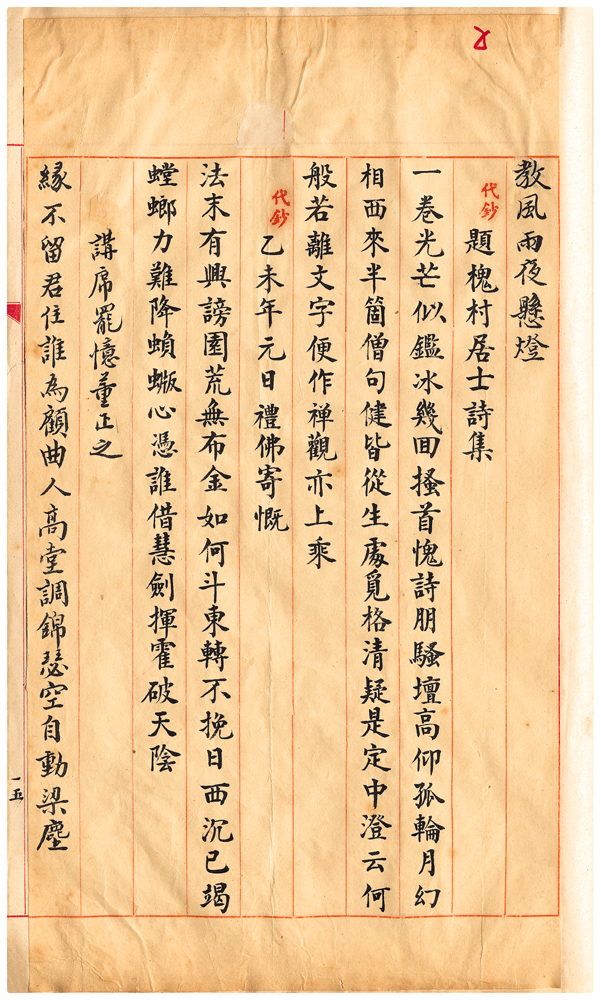 又
教風雨夜懸燈
代鈔
題槐村居士詩集
一卷光芒似鑑冰幾回搔首愧詩朋騷壇高仰孤輪月幻
相西來半箇僧句健皆從生處覓格清疑是定中澄云何
般若離文字便作禅觀亦上乘
代鈔
乙未年元日禮佛寄慨
法末有興謗園荒無布金如何斗東轉不挽日西沉已竭
螳螂力難降蝜蝂心憑誰借慧劍揮霍破天陰
講席罷憶董正之
緣不留君住誰為顧曲人高堂調錦瑟空自動梁塵
一五